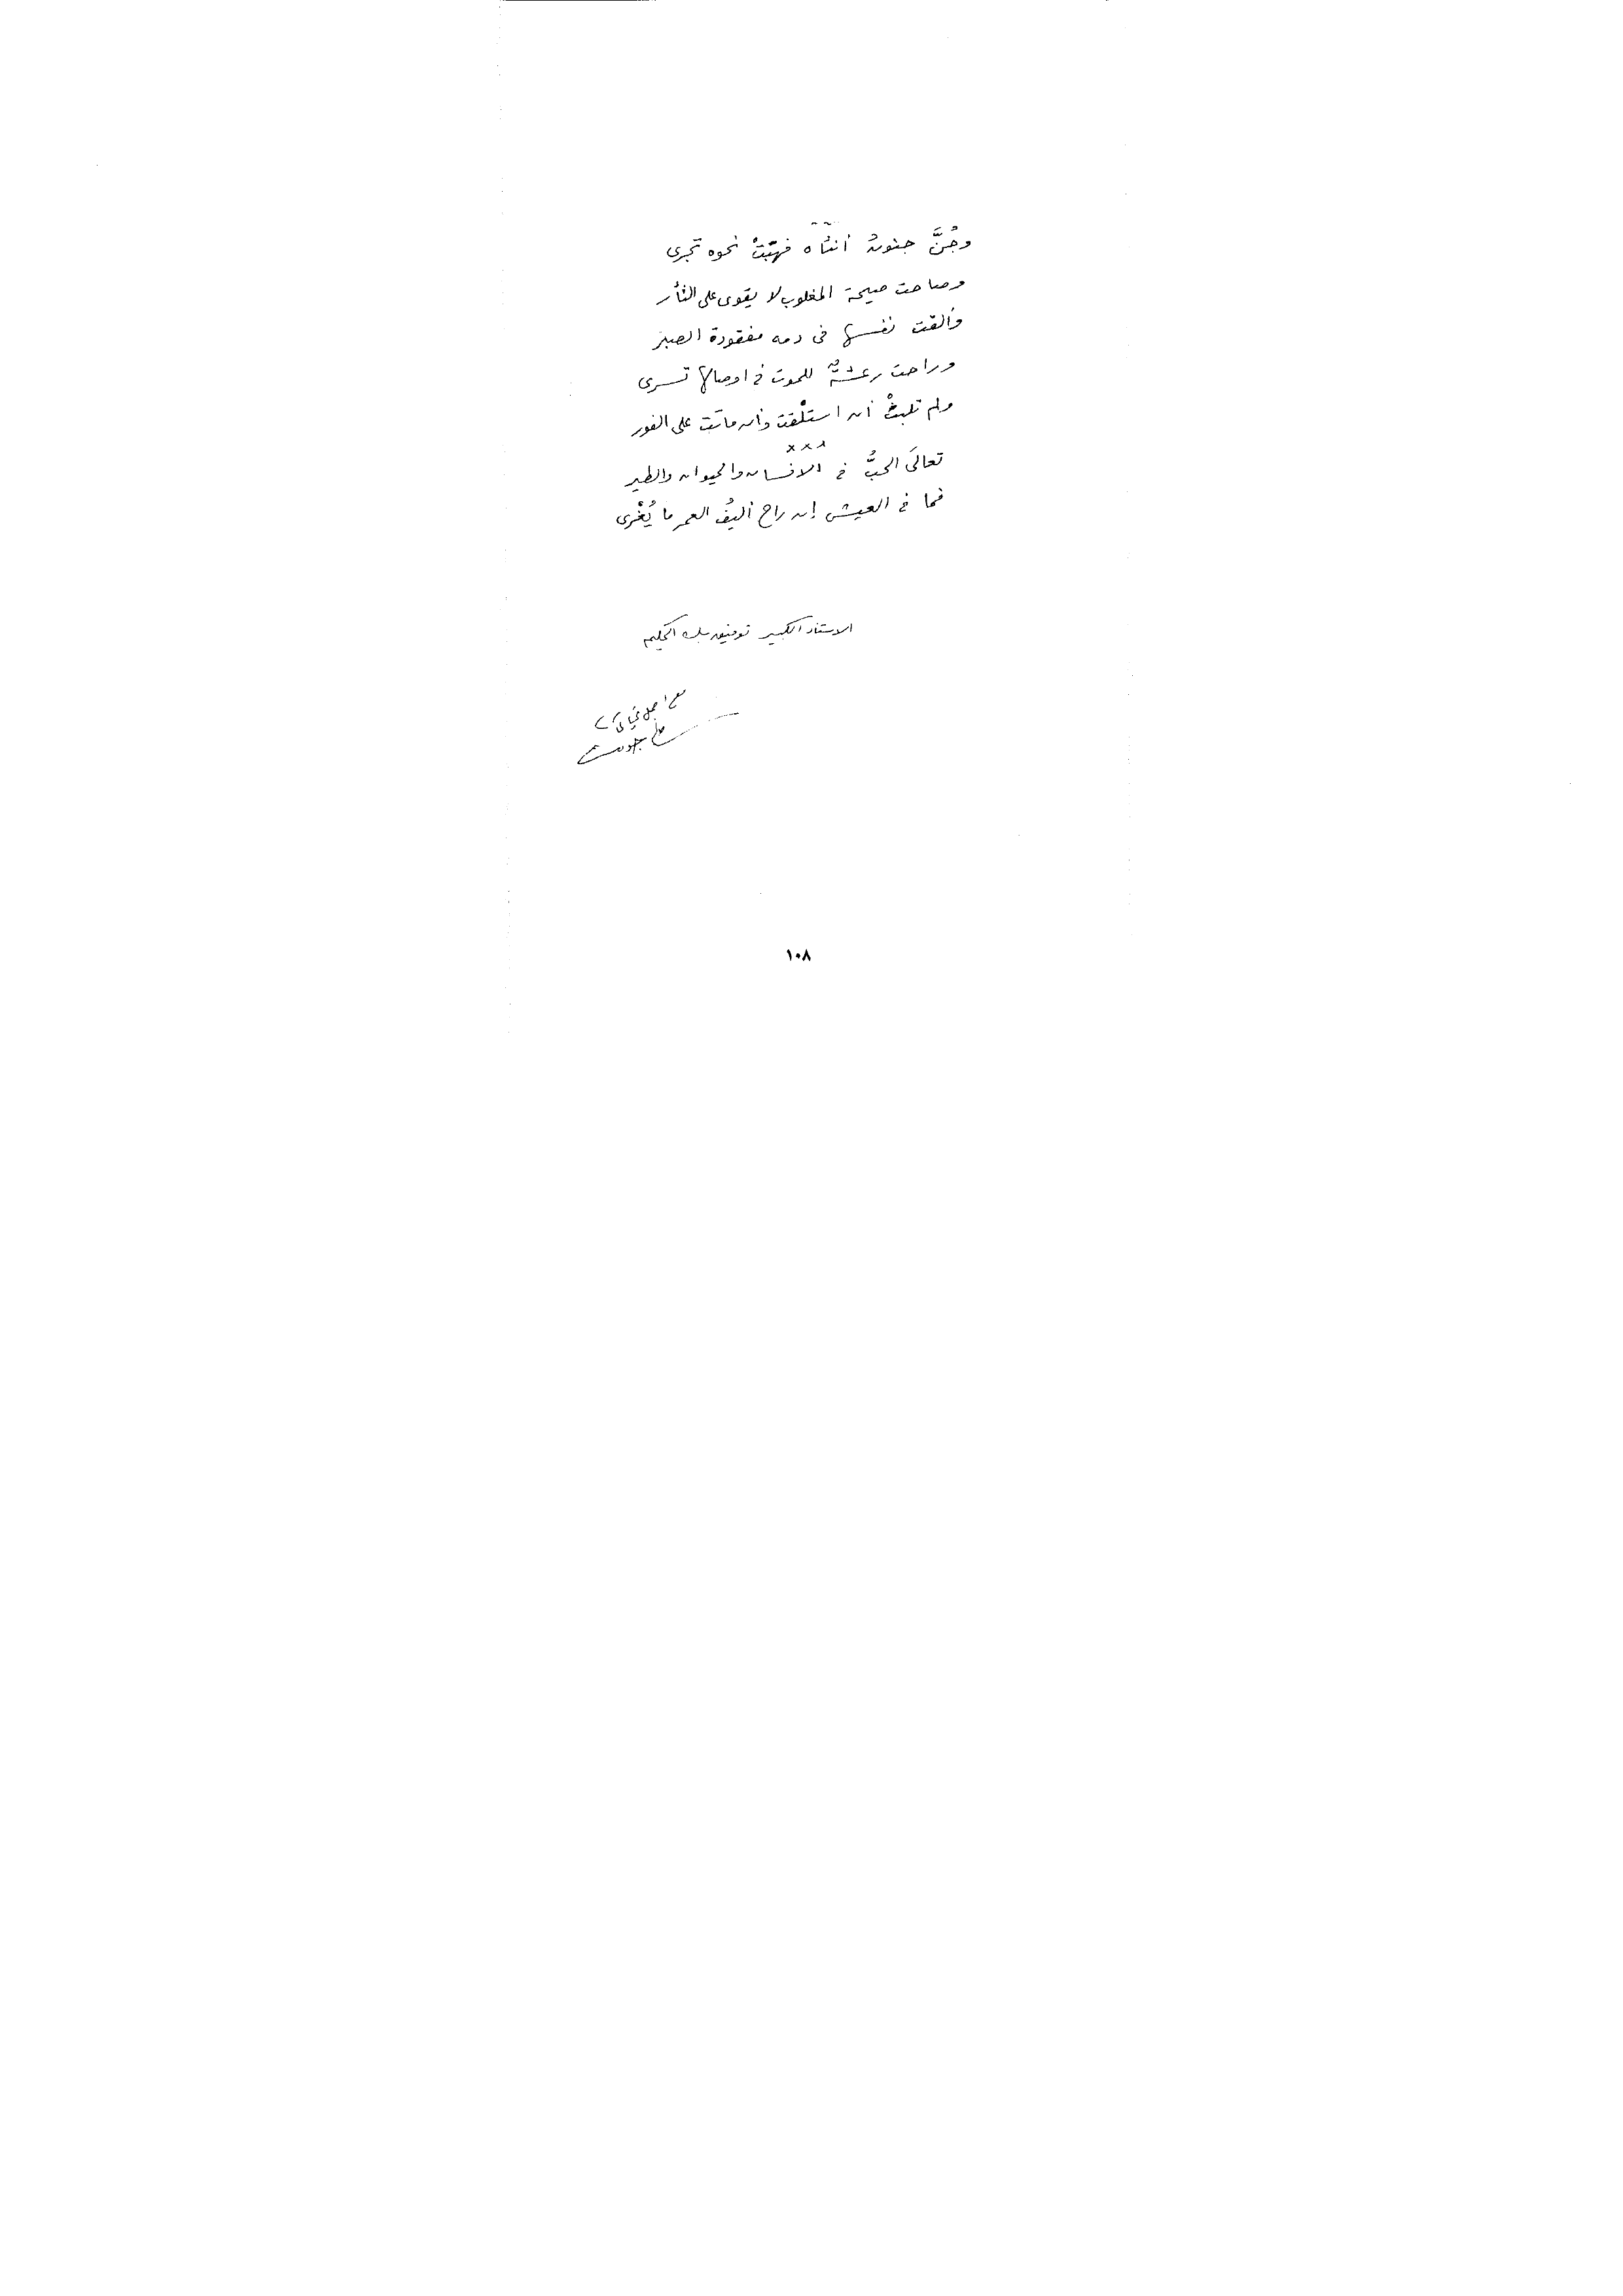 وجُنَّ جنونُ أنثاه فهبّتْ نحوه تجرى
وصاحت صيحة المغلوب لا يقوى على الثأر
وألقت نفسها فى دمه مفقودة الصبر
وراحت رعشةٌ للموت فى اوصالها تسرى
ولم تلبثْ أن استلْقت وأن ماتت على الفور
×××
تعالَى الحبُّ فى الانسان والحيوان والطير
فما فى العيش إن راح أليفُ العمر ما يُغْرى
الاستاذ الكبير توفيق بك الحكيم
مع
صالح جودت
١٠٨